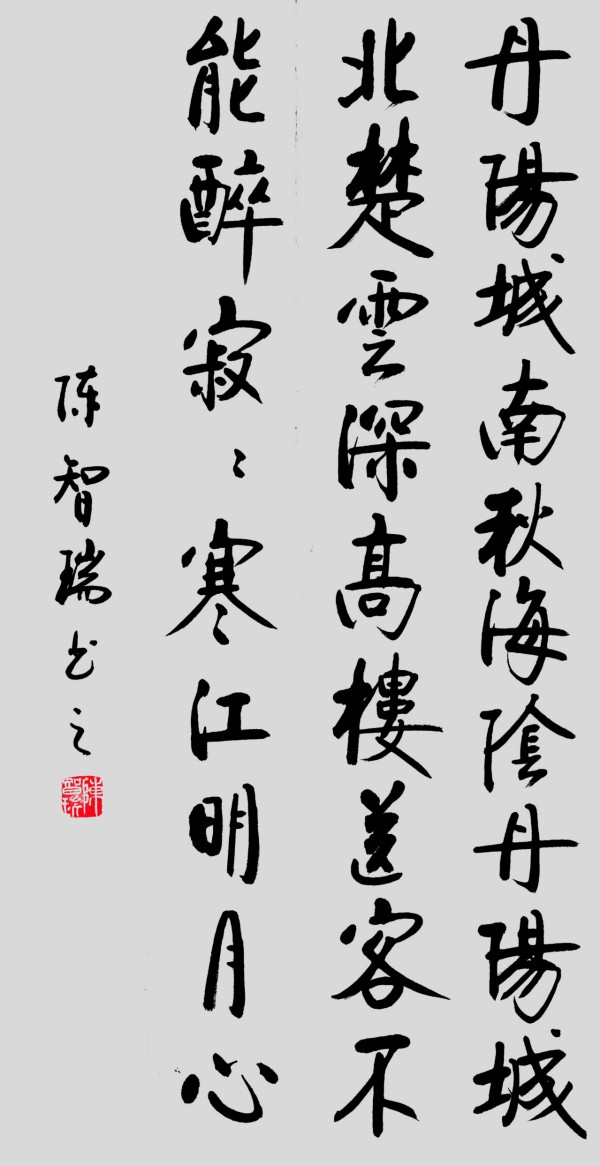 丹陽城南秋海陰丹陽城
北楚雲深高樓送客不
能醉寂〻寒江明月心
陈智瑞书之